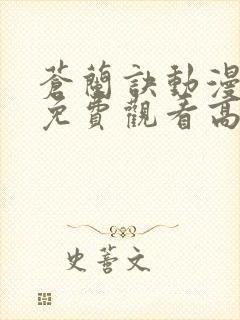 蒼蘭訣動漫
免費觀看高
史薈文